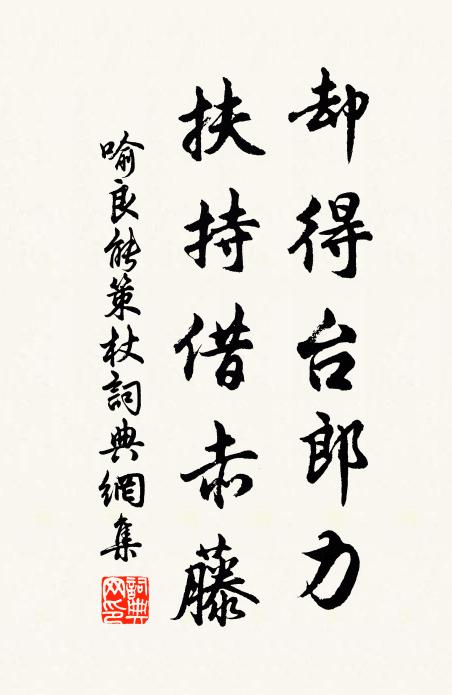 却得台郎力
扶持借赤藤
喻良能策杖詞典網集
詞典網印